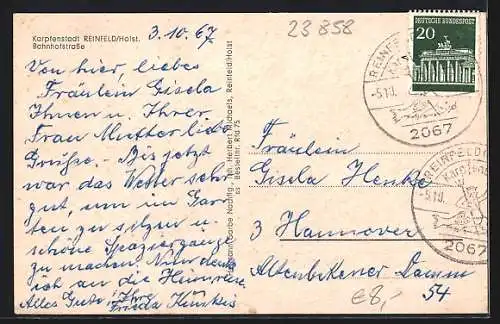 Karpfenstadt REINFELD/Holst.
Bahnhofstraße
3.10.67
23 858
Von hier, liebes
Fräulein Gisela
Ihnen u. Ihrer
Frau Mutter liebe
Grüße. - Bis jetzt
war das Wetter sehr
gut, um im Garten
zu sitzen u.
schöne Spaziergänge
zu machen. Nun denke
ich an die Heimreise
Alles Gute! Ihre
Frieda
Nachflg., Inh. Herbert Michaels, Reinfeld/Holst
Bestellnr. Rfd 75
DEUTSCHE BUNDESPOST
20
REINFELD
-5.10.
2067
REINFELD
Karpfens
-5.10.
2067
Fräulein
Gisela Henke
3 Hannover
Altenbekener Damm
54
€8,-